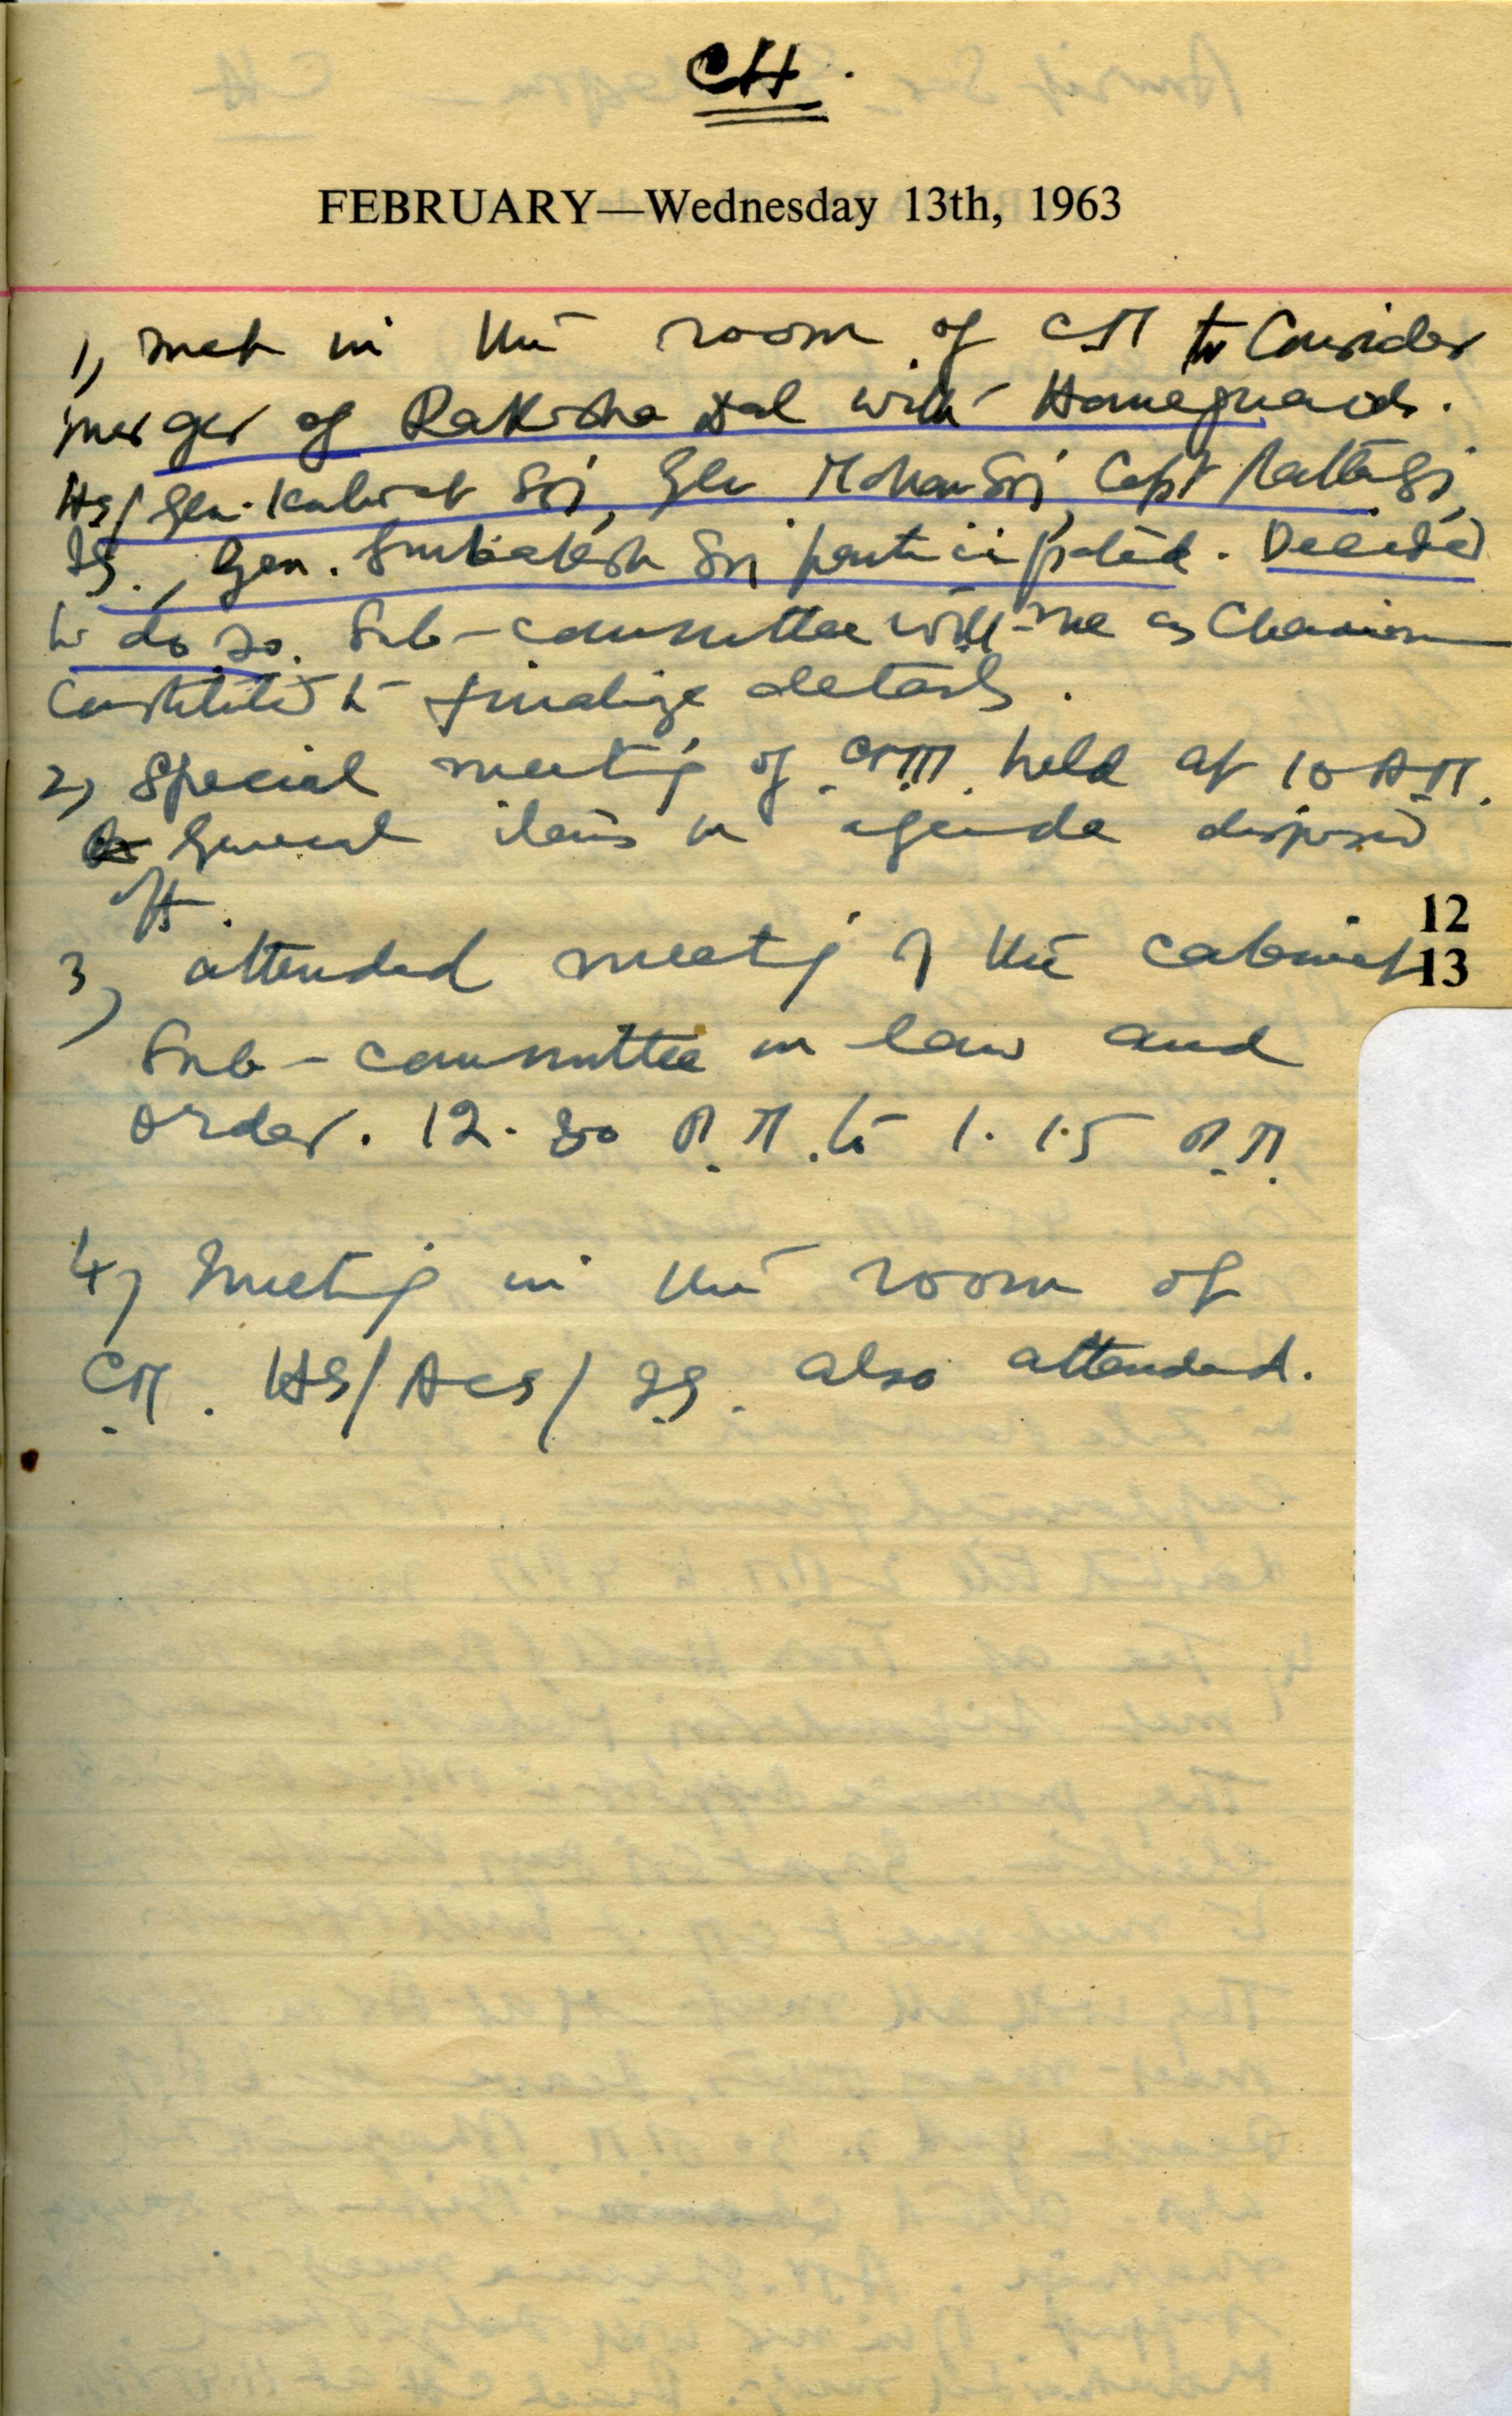 CH.
FEBRUARY—Wednesday 13th, 1963
1) met in the room of CM to Consider
merger of Raksha Dal with Homeguards.
HS/Gen. Kulwant Sgj, Gen Mohan Sgj, Capt Rattan Sgj,
IG., Gen. Gurbaksh Sgj participated. Decided
to do so. Sub-committee with me as Chairman
Constituted to finalize details.
2) Special meeting of C.M.M. held at 10 A.M.
Several items on agenda disposed
off.
12
3) attended meeting of the cabinet
13
Sub-committee on law and
order. 12.30 P.M. to 1.15 P.M.
4) Meeting in the room of
C.M. HS/ACS/IG. also attended.